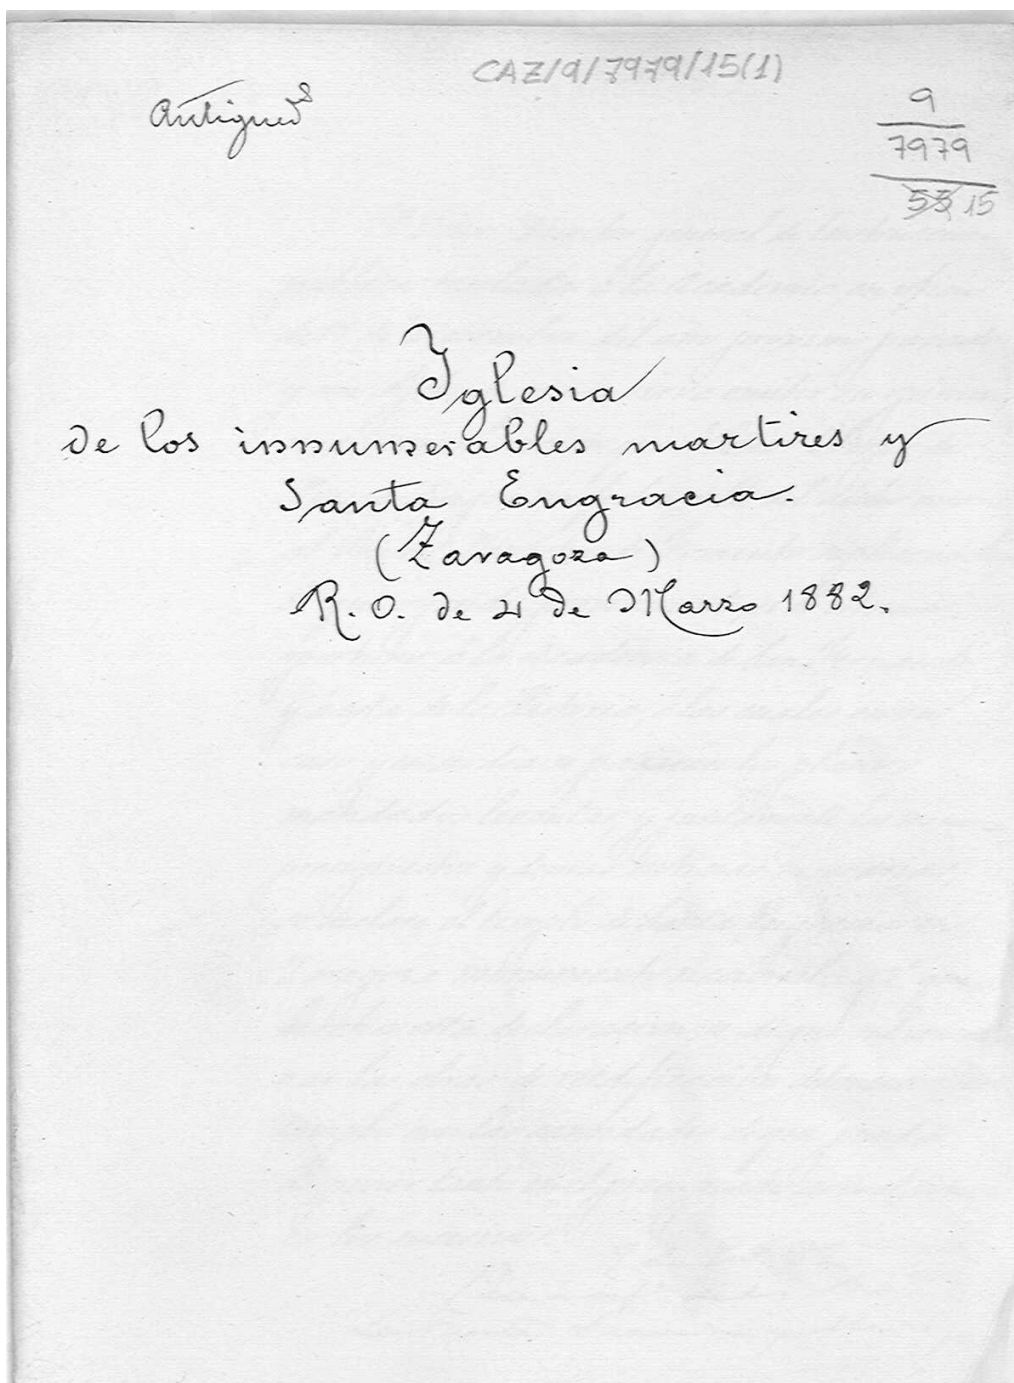 CAZ/9/7979/15(1)
Antigued^s
9
7979
55 15
Iglesia
de los innumerables martires y
Santa Engracia.
(Zaragoza)
R. O. de 4 de Marzo 1882.